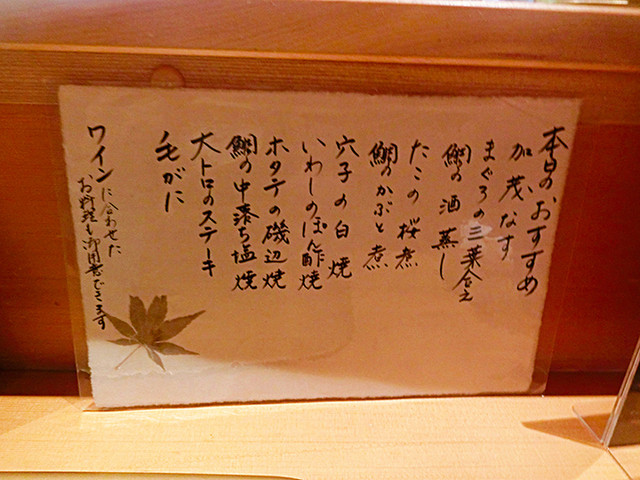 本日のおすすめ
加茂なす
まぐろの三葉合え
鯛の酒蒸し
たこの桜煮
鯛のかぶと煮
穴子の白焼
いわしのぽん酢焼
ホタテの磯辺焼
鯛の中落ち塩焼
大トロのステーキ
毛がに
ワインに合わせた
お料理も御用意できます